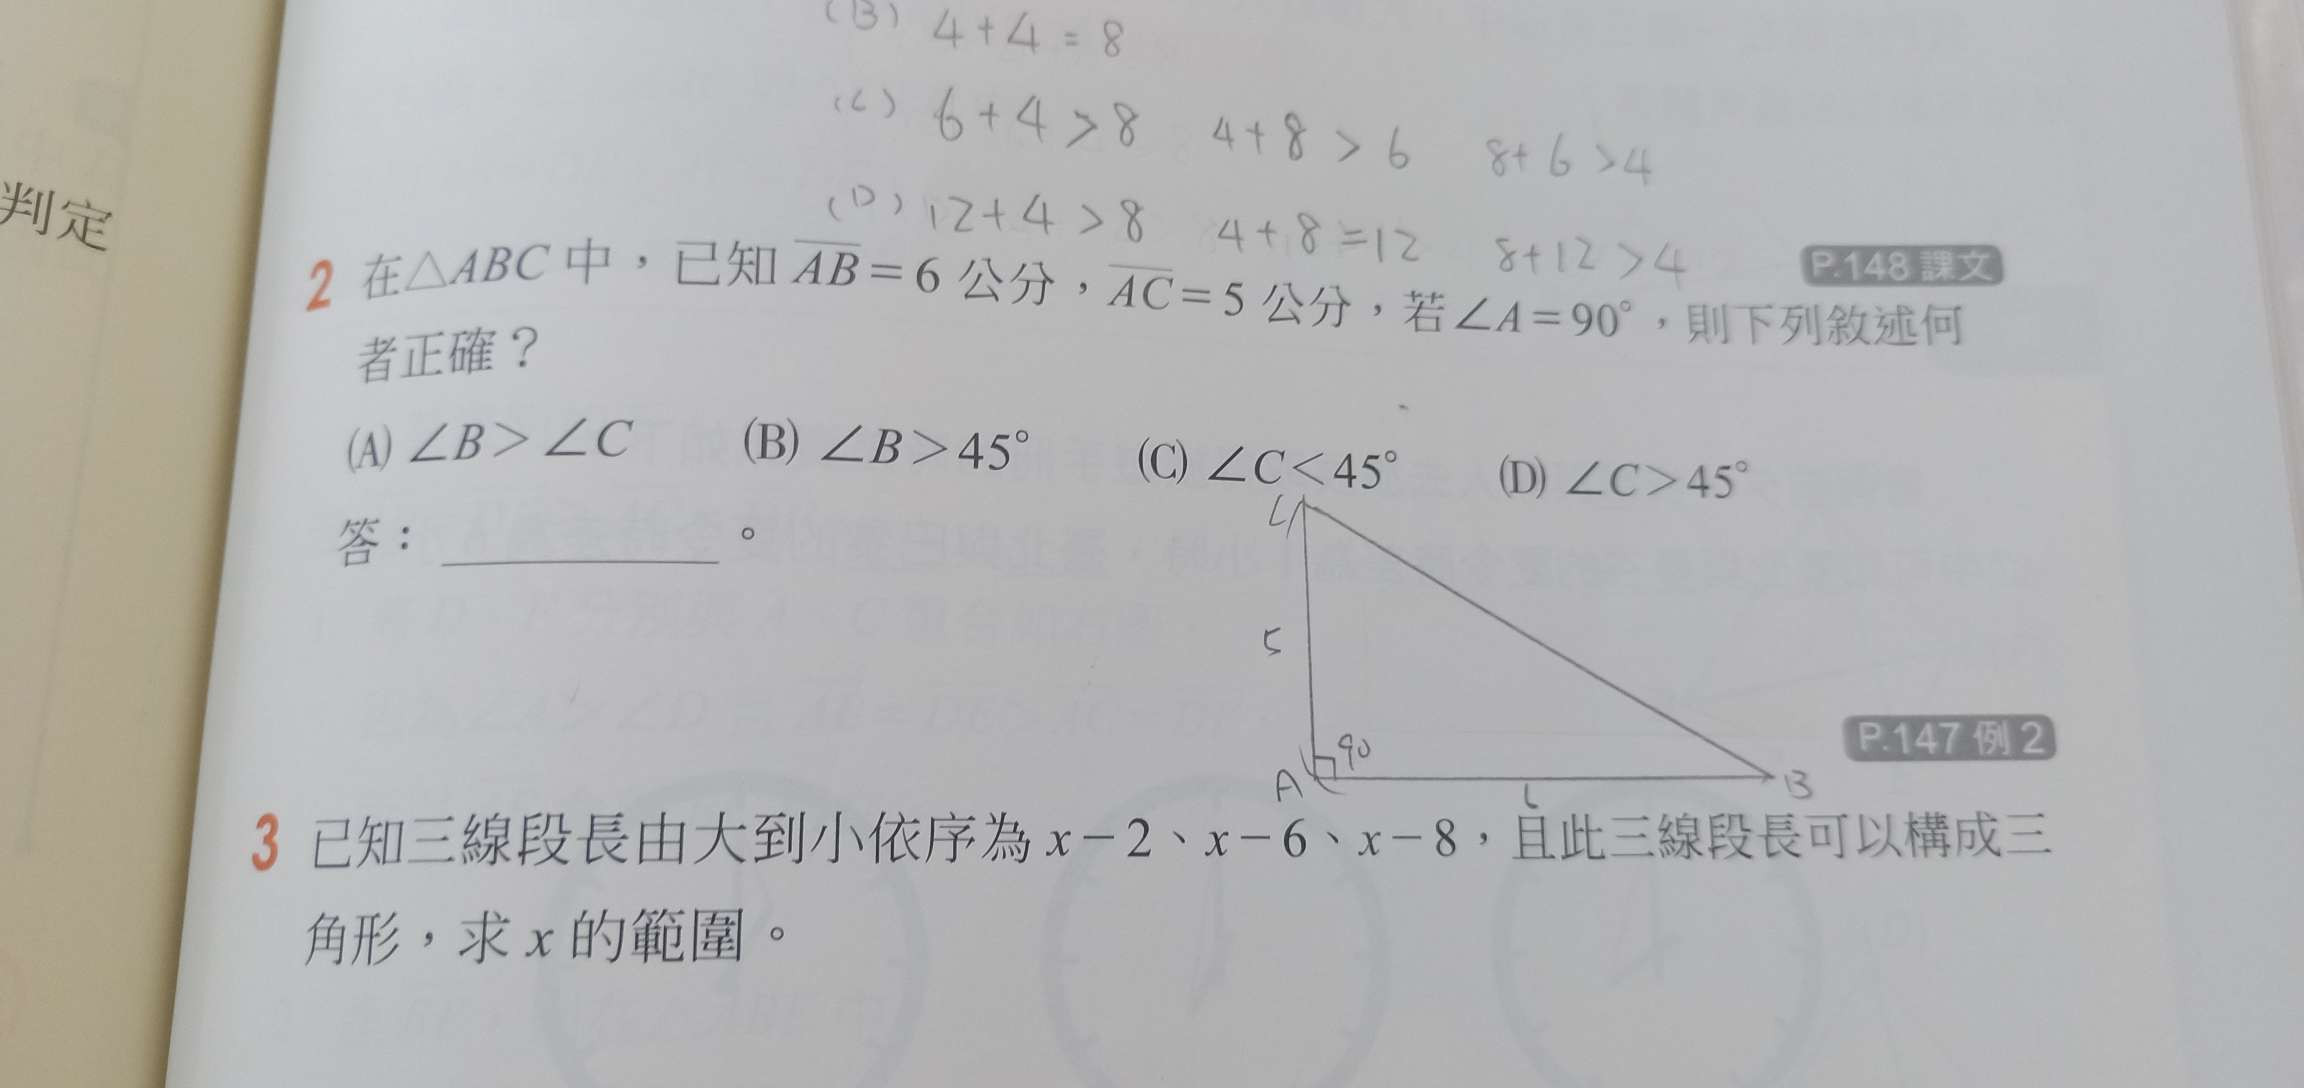 (B) 4+4=8
(C) 6+4>8 4+8>6 8+6>4
(D) 12+4>8 4+8=12 8+12>4
判定
P.148 課文
2 在△ABC 中，已知 AB=6 公分，AC=5 公分，若∠A=90°，則下列敘述何
者正確？
(A) ∠B>∠C (B) ∠B>45° (C) ∠C<45° (D) ∠C>45°
答：＿＿＿＿。
C
5
90
A
6
B
P.147 例 2
3 已知三線段長由大到小依序為 x-2、x-6、x-8，且此三線段長可以構成三
角形，求 x 的範圍。